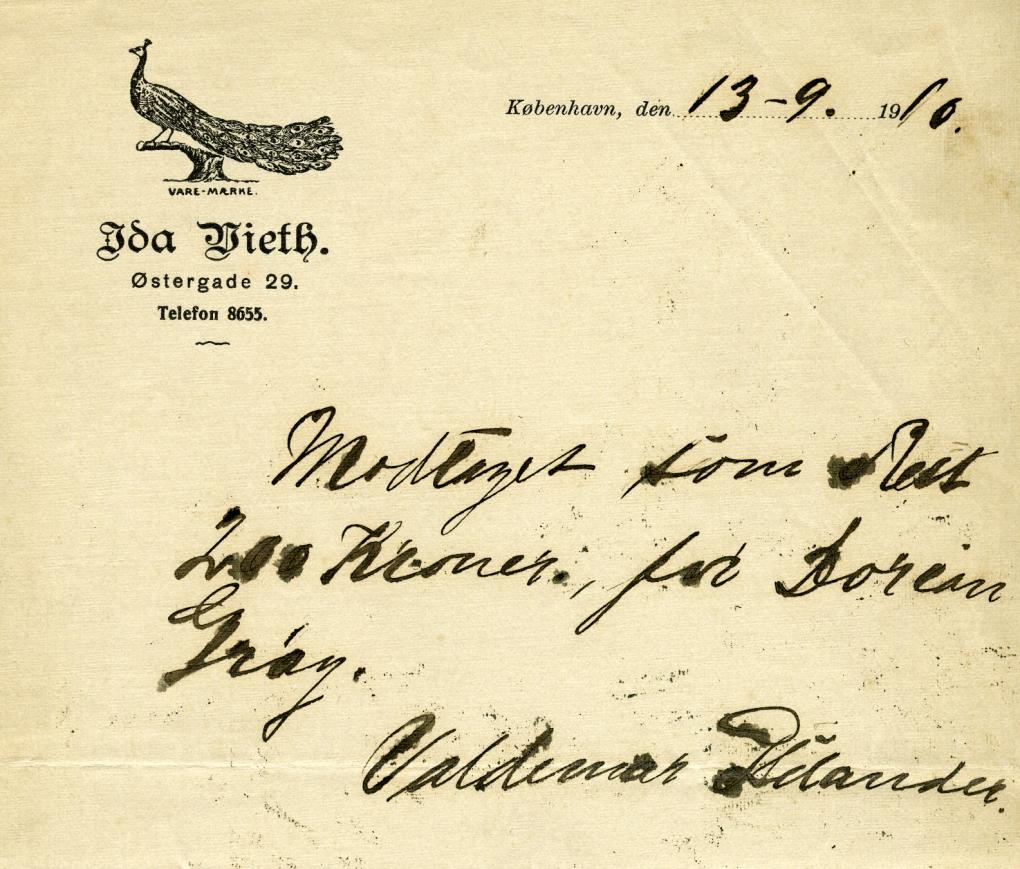 København, den 13-9. 1910.
VARE-MÆRKE.
Ida Vieth.
Østergade 29.
Telefon 8655.
Modtaget som Rest
200 Kroner., for Dorian
Gray.
Valdemar Psilander.